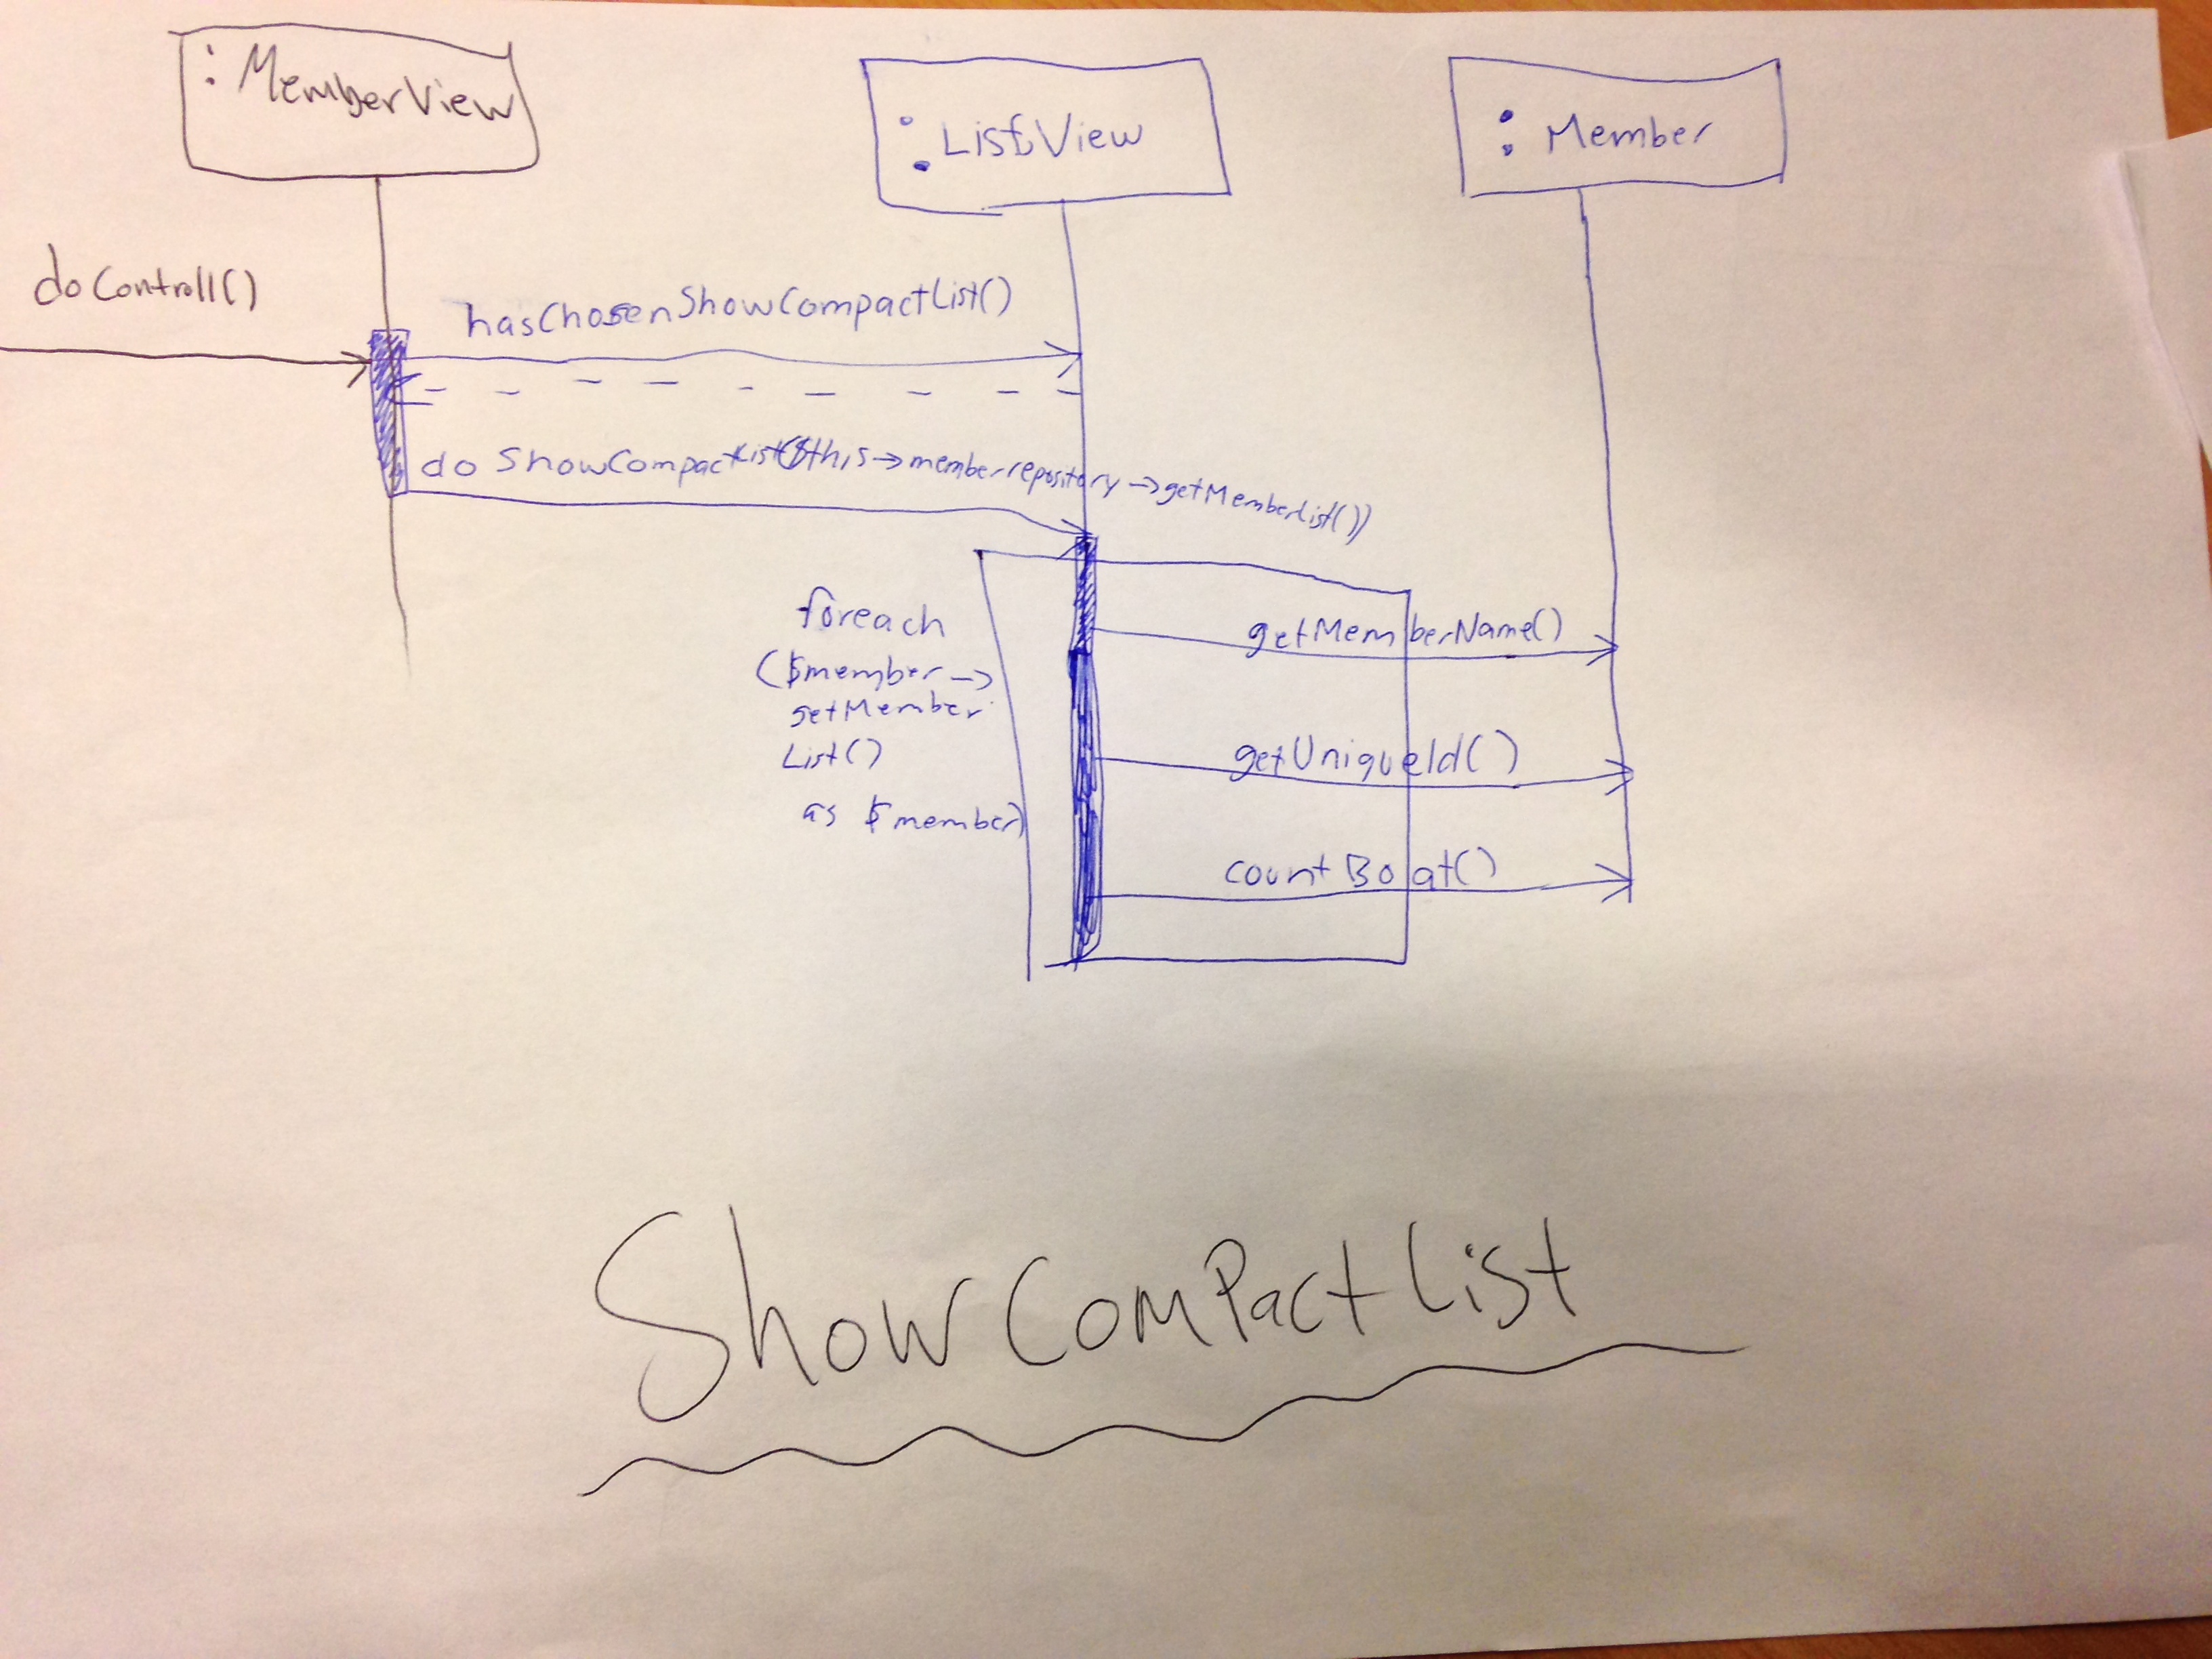 : MemberView
: ListView
: Member
doControll()
hasChosenShowCompactList()
doShowCompactList($this->memberrepository->getMemberList())
foreach
($member->
getMember
List()
as $member)
getMemberName()
getUniqueId()
countBoat()
ShowCompactList